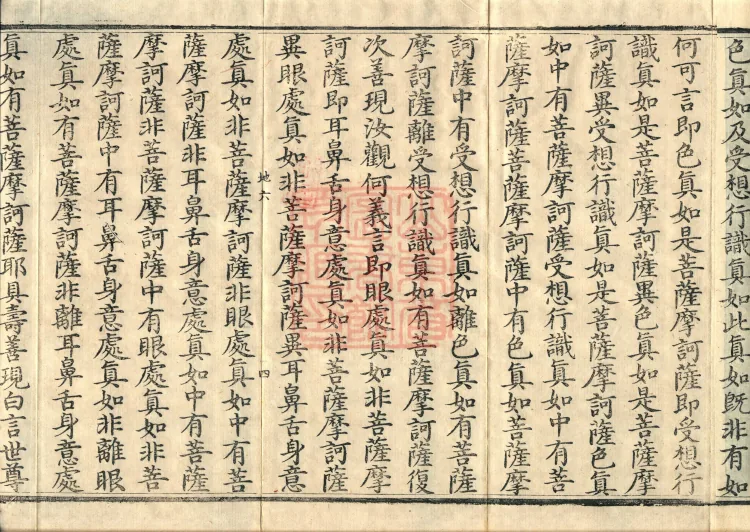 色真如及受想行識真如此真如旣非有如
何可言即色真如是菩薩摩訶薩即受想行
識真如是菩薩摩訶薩異色真如是菩薩摩
訶薩異受想行識真如是菩薩摩訶薩色真
如中有菩薩摩訶薩受想行識真如中有菩
薩摩訶薩菩薩摩訶薩中有色真如菩薩摩
訶薩中有受想行識真如離色真如有菩薩
摩訶薩離受想行識真如有菩薩摩訶薩復
次善現汝觀何義言即眼處真如非菩薩摩
訶薩即耳鼻舌身意處真如非菩薩摩訶薩
異眼處真如非菩薩摩訶薩異耳鼻舌身意
地六 四
處真如非菩薩摩訶薩非眼處真如中有菩
薩摩訶薩非耳鼻舌身意處真如中有菩薩
摩訶薩非菩薩摩訶薩中有眼處真如非菩
薩摩訶薩中有耳鼻舌身意處真如非離眼
處真如有菩薩摩訶薩非離耳鼻舌身意處
真如有菩薩摩訶薩耶具壽善現白言世尊